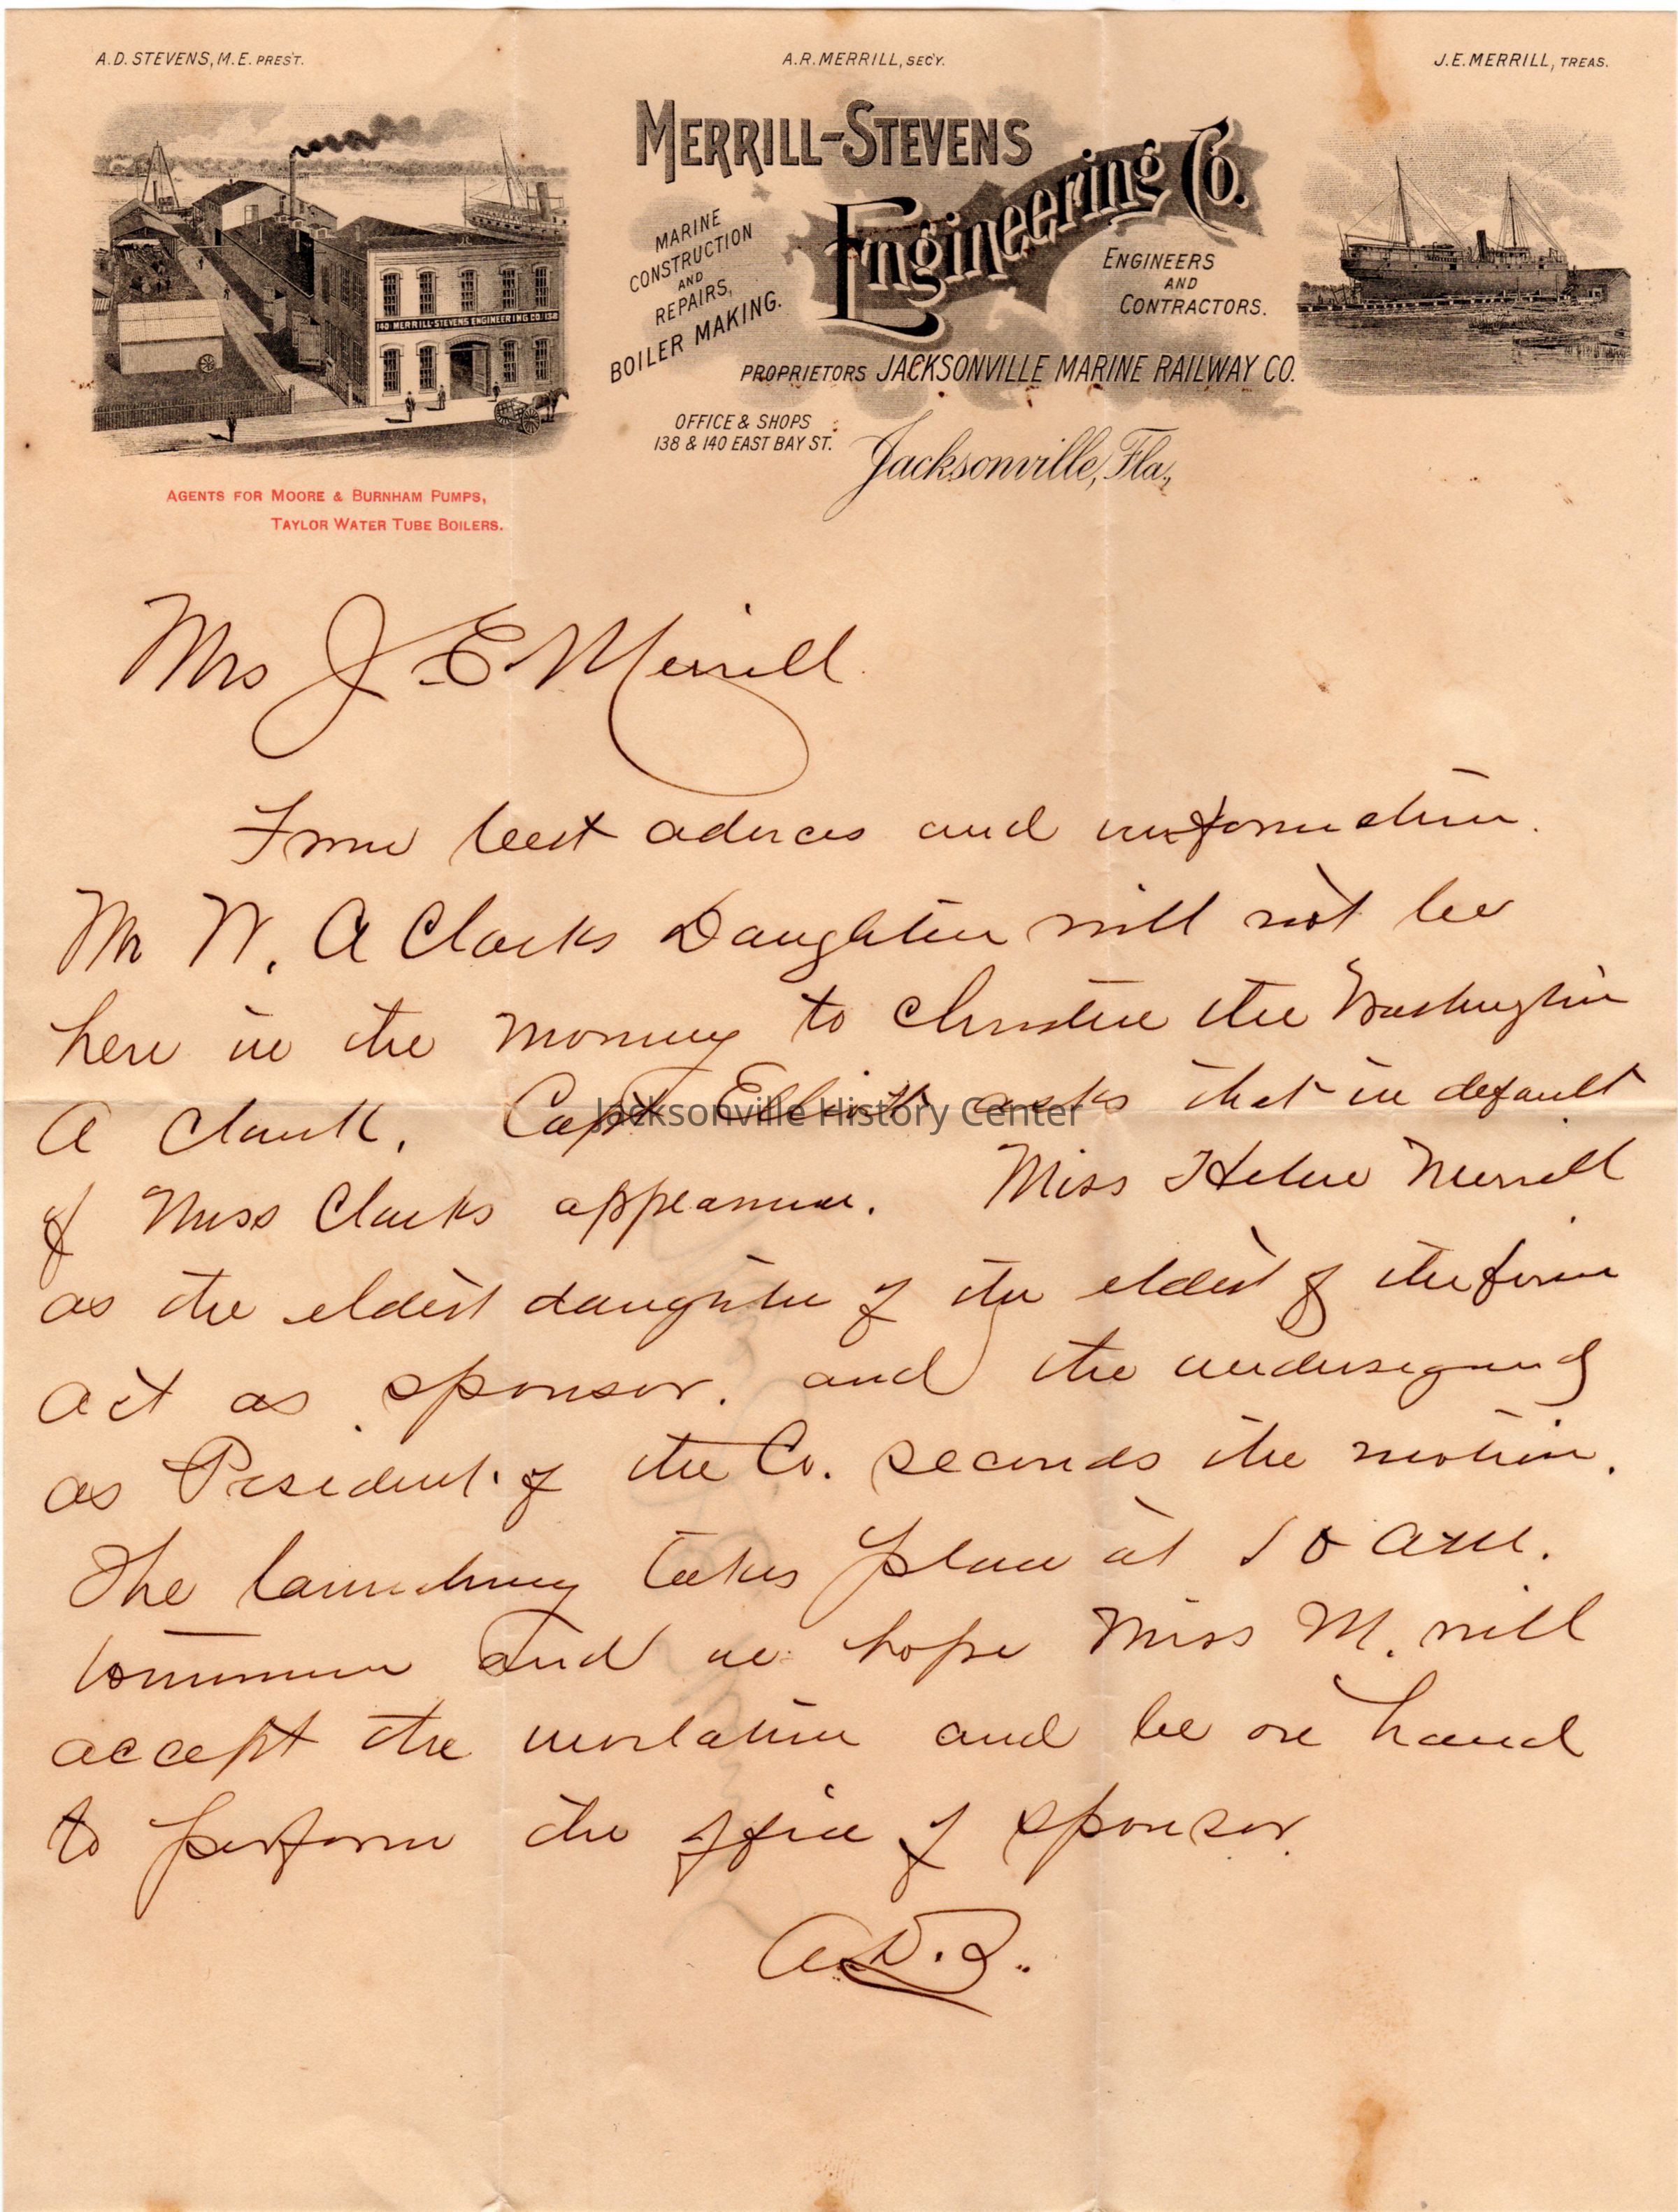 A.D. STEVENS, M.E. PRES'T.
A.R. MERRILL, SEC'Y.
J.E. MERRILL, TREAS.
MERRILL-STEVENS
Engineering Co.
MARINE
CONSTRUCTION
AND
REPAIRS,
BOILER MAKING.
ENGINEERS
AND
CONTRACTORS.
PROPRIETORS JACKSONVILLE MARINE RAILWAY CO.
140 MERRILL-STEVENS ENGINEERING CO. 138
OFFICE & SHOPS
138 & 140 EAST BAY ST.
Jacksonville, Fla.,
AGENTS FOR MOORE & BURNHAM PUMPS,
TAYLOR WATER TUBE BOILERS.
Mrs J. E. Merrill.
From best advices and information.
Mr W. A Clarks Daughter will not be
here in the morning to christen the Washington
A Clark. Capt Elliott asks that in default
of Miss Clarks appearance. Miss Helen Merrill
as the eldest daughter of the eldest of the firm
act as sponsor. and the undersigned
as President of the Co. seconds the motion.
The launching takes place at 10 am.
tomorrow and we hope Miss M. will
accept the invitation and be on hand
to perform the office of sponsor.
A.D.S.
Jacksonville History Center